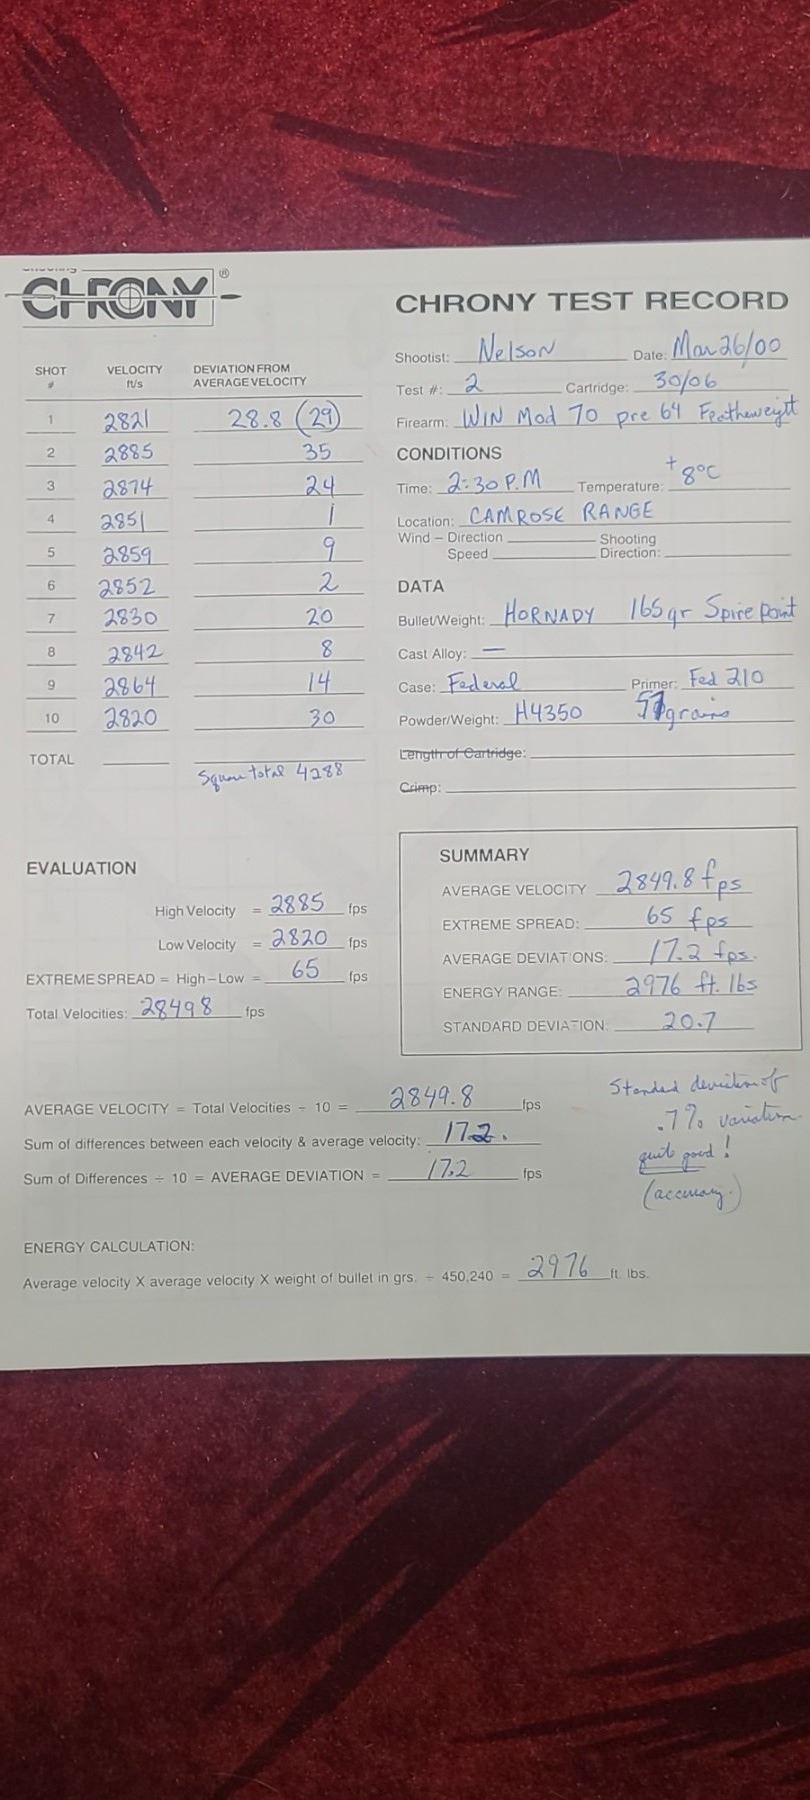 CHRONY ®
CHRONY TEST RECORD
Shootist: Nelson Date: Mar 26/00
Test #: 2 Cartridge: 30/06
Firearm: WIN Mod 70 pre 64 Featheweight
CONDITIONS
Time: 2:30 P.M Temperature: +8°C
Location: CAMROSE RANGE
Wind – Direction Shooting
Speed Direction:
DATA
Bullet/Weight: HORNADY 165 gr Spire point
Cast Alloy: —
Case: Federal Primer: Fed 210
Powder/Weight: H4350 57 grains
Length of Cartridge:
Crimp:
SHOT # VELOCITY ft/s DEVIATION FROM AVERAGE VELOCITY
1 2821 28.8 (29)
2 2885 35
3 2874 24
4 2851 1
5 2859 9
6 2852 2
7 2830 20
8 2842 8
9 2864 14
10 2820 30
TOTAL
Square total 4288
EVALUATION
High Velocity = 2885 fps
Low Velocity = 2820 fps
EXTREME SPREAD = High – Low = 65 fps
Total Velocities: 28498 fps
SUMMARY
AVERAGE VELOCITY 2849.8 fps
EXTREME SPREAD: 65 fps
AVERAGE DEVIATIONS: 17.2 fps.
ENERGY RANGE: 2976 ft. lbs
STANDARD DEVIATION: 20.7
AVERAGE VELOCITY = Total Velocities ÷ 10 = 2849.8 fps
Sum of differences between each velocity & average velocity: 172.
Sum of Differences ÷ 10 = AVERAGE DEVIATION = 17.2 fps
Standard deviation of
.7% variation
quite good!
(accuracy.)
ENERGY CALCULATION:
Average velocity X average velocity X weight of bullet in grs. ÷ 450,240 = 2976 ft. lbs.